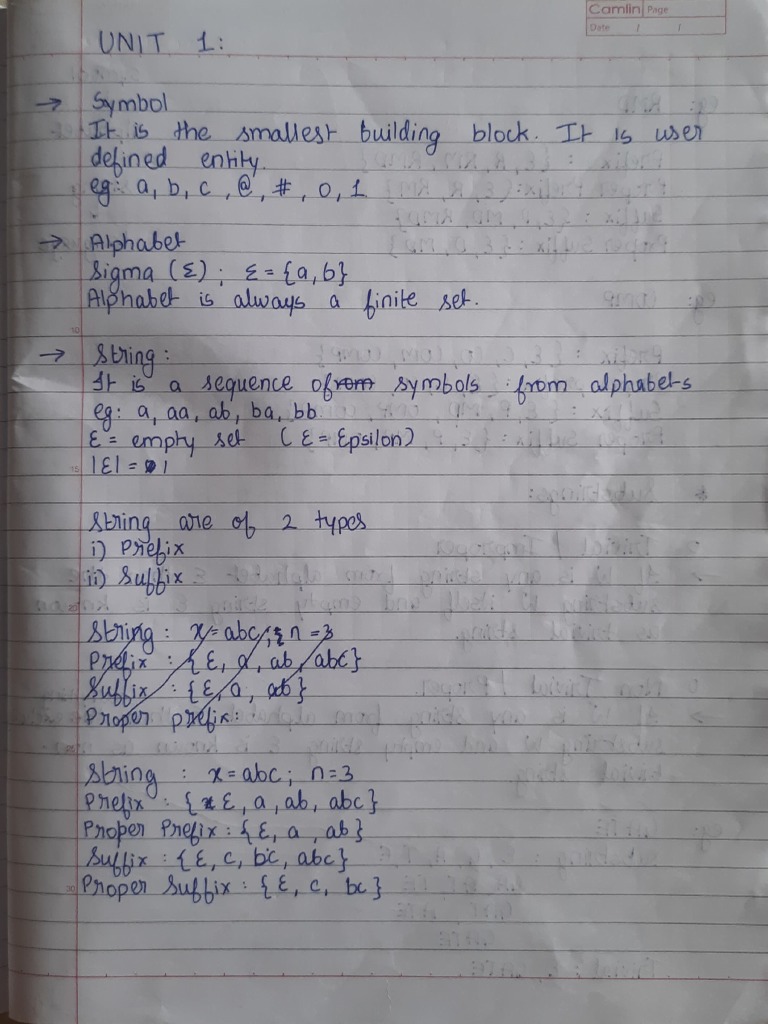 Camlin Page
Date / /
UNIT 1:
→ Symbol
It is the smallest building block. It is user
defined entity.
eg: a, b, c, @, #, 0, 1
→ Alphabet
Sigma (Ɛ); Ɛ = {a, b}
Alphabet is always a finite set.
10
→ String:
It is a sequence of symbols from alphabets
eg: a, aa, ab, ba, bb
Ɛ = empty set (Ɛ = Epsilon)
15 |Ɛ| = 1
String are of 2 types
i) Prefix
ii) Suffix
String : x = abc; n = 3
Prefix : {Ɛ, a, ab, abc}
Suffix : {Ɛ, a, ab}
Proper prefix:
String : x = abc; n = 3
Prefix : {Ɛ, a, ab, abc}
Proper Prefix : {Ɛ, a, ab}
Suffix : {Ɛ, c, bc, abc}
Proper Suffix : {Ɛ, c, bc}